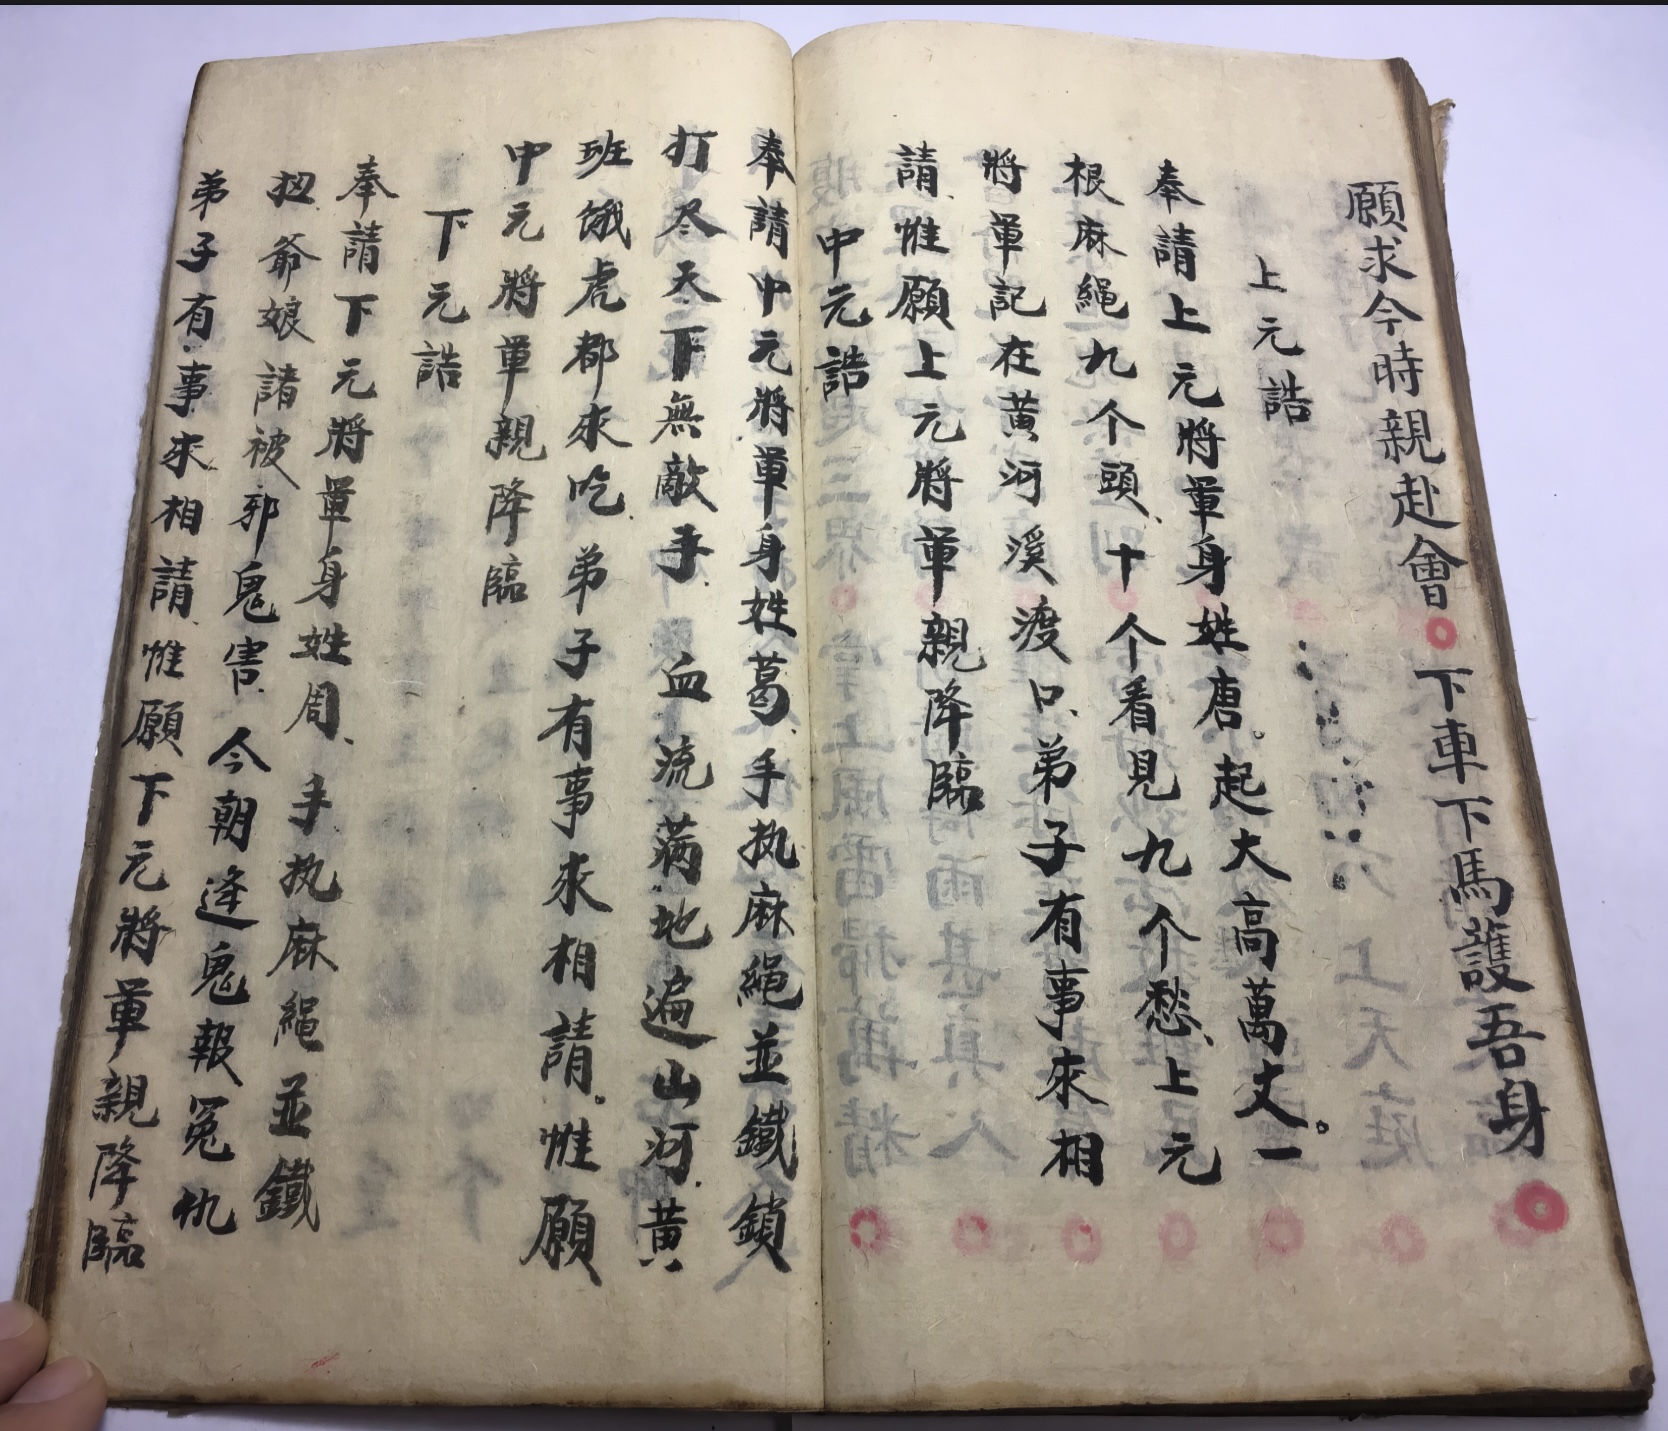 願求今時親赴會下車下馬護吾身
上元誥
奉請上元將軍身姓唐起大高萬丈一
根麻繩九个頭十个看見九个愁上元
將軍記在黃河溪渡口弟子有事來相
請惟願上元將軍親降臨
中元誥
奉請中元將軍身姓葛手执麻繩並鐵鎖
打尽天下無敵手血流蒲地遍山河黃
班餓虎都來吃弟子有事來相請惟願
中元將軍親降臨
下元誥
奉請下元將軍身姓周手执麻繩並鐵
扭爺娘諸被邪鬼害今朝逢鬼報冤仇
弟子有事來相請惟願下元將軍親降臨